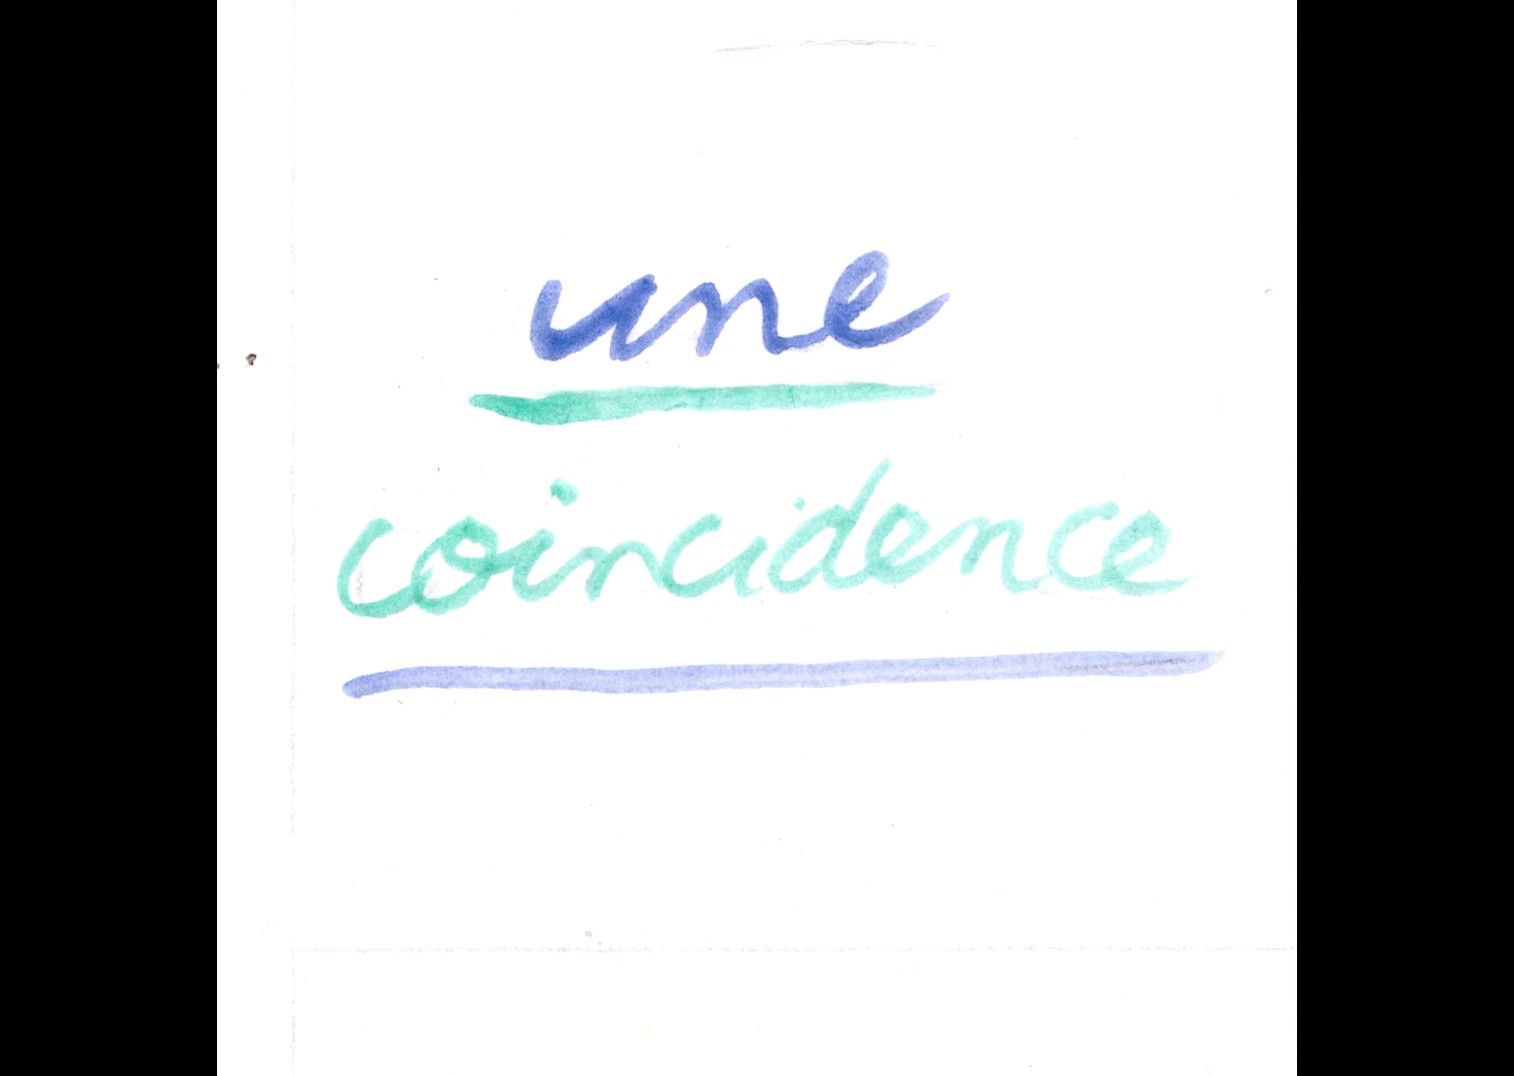 une
coincidence